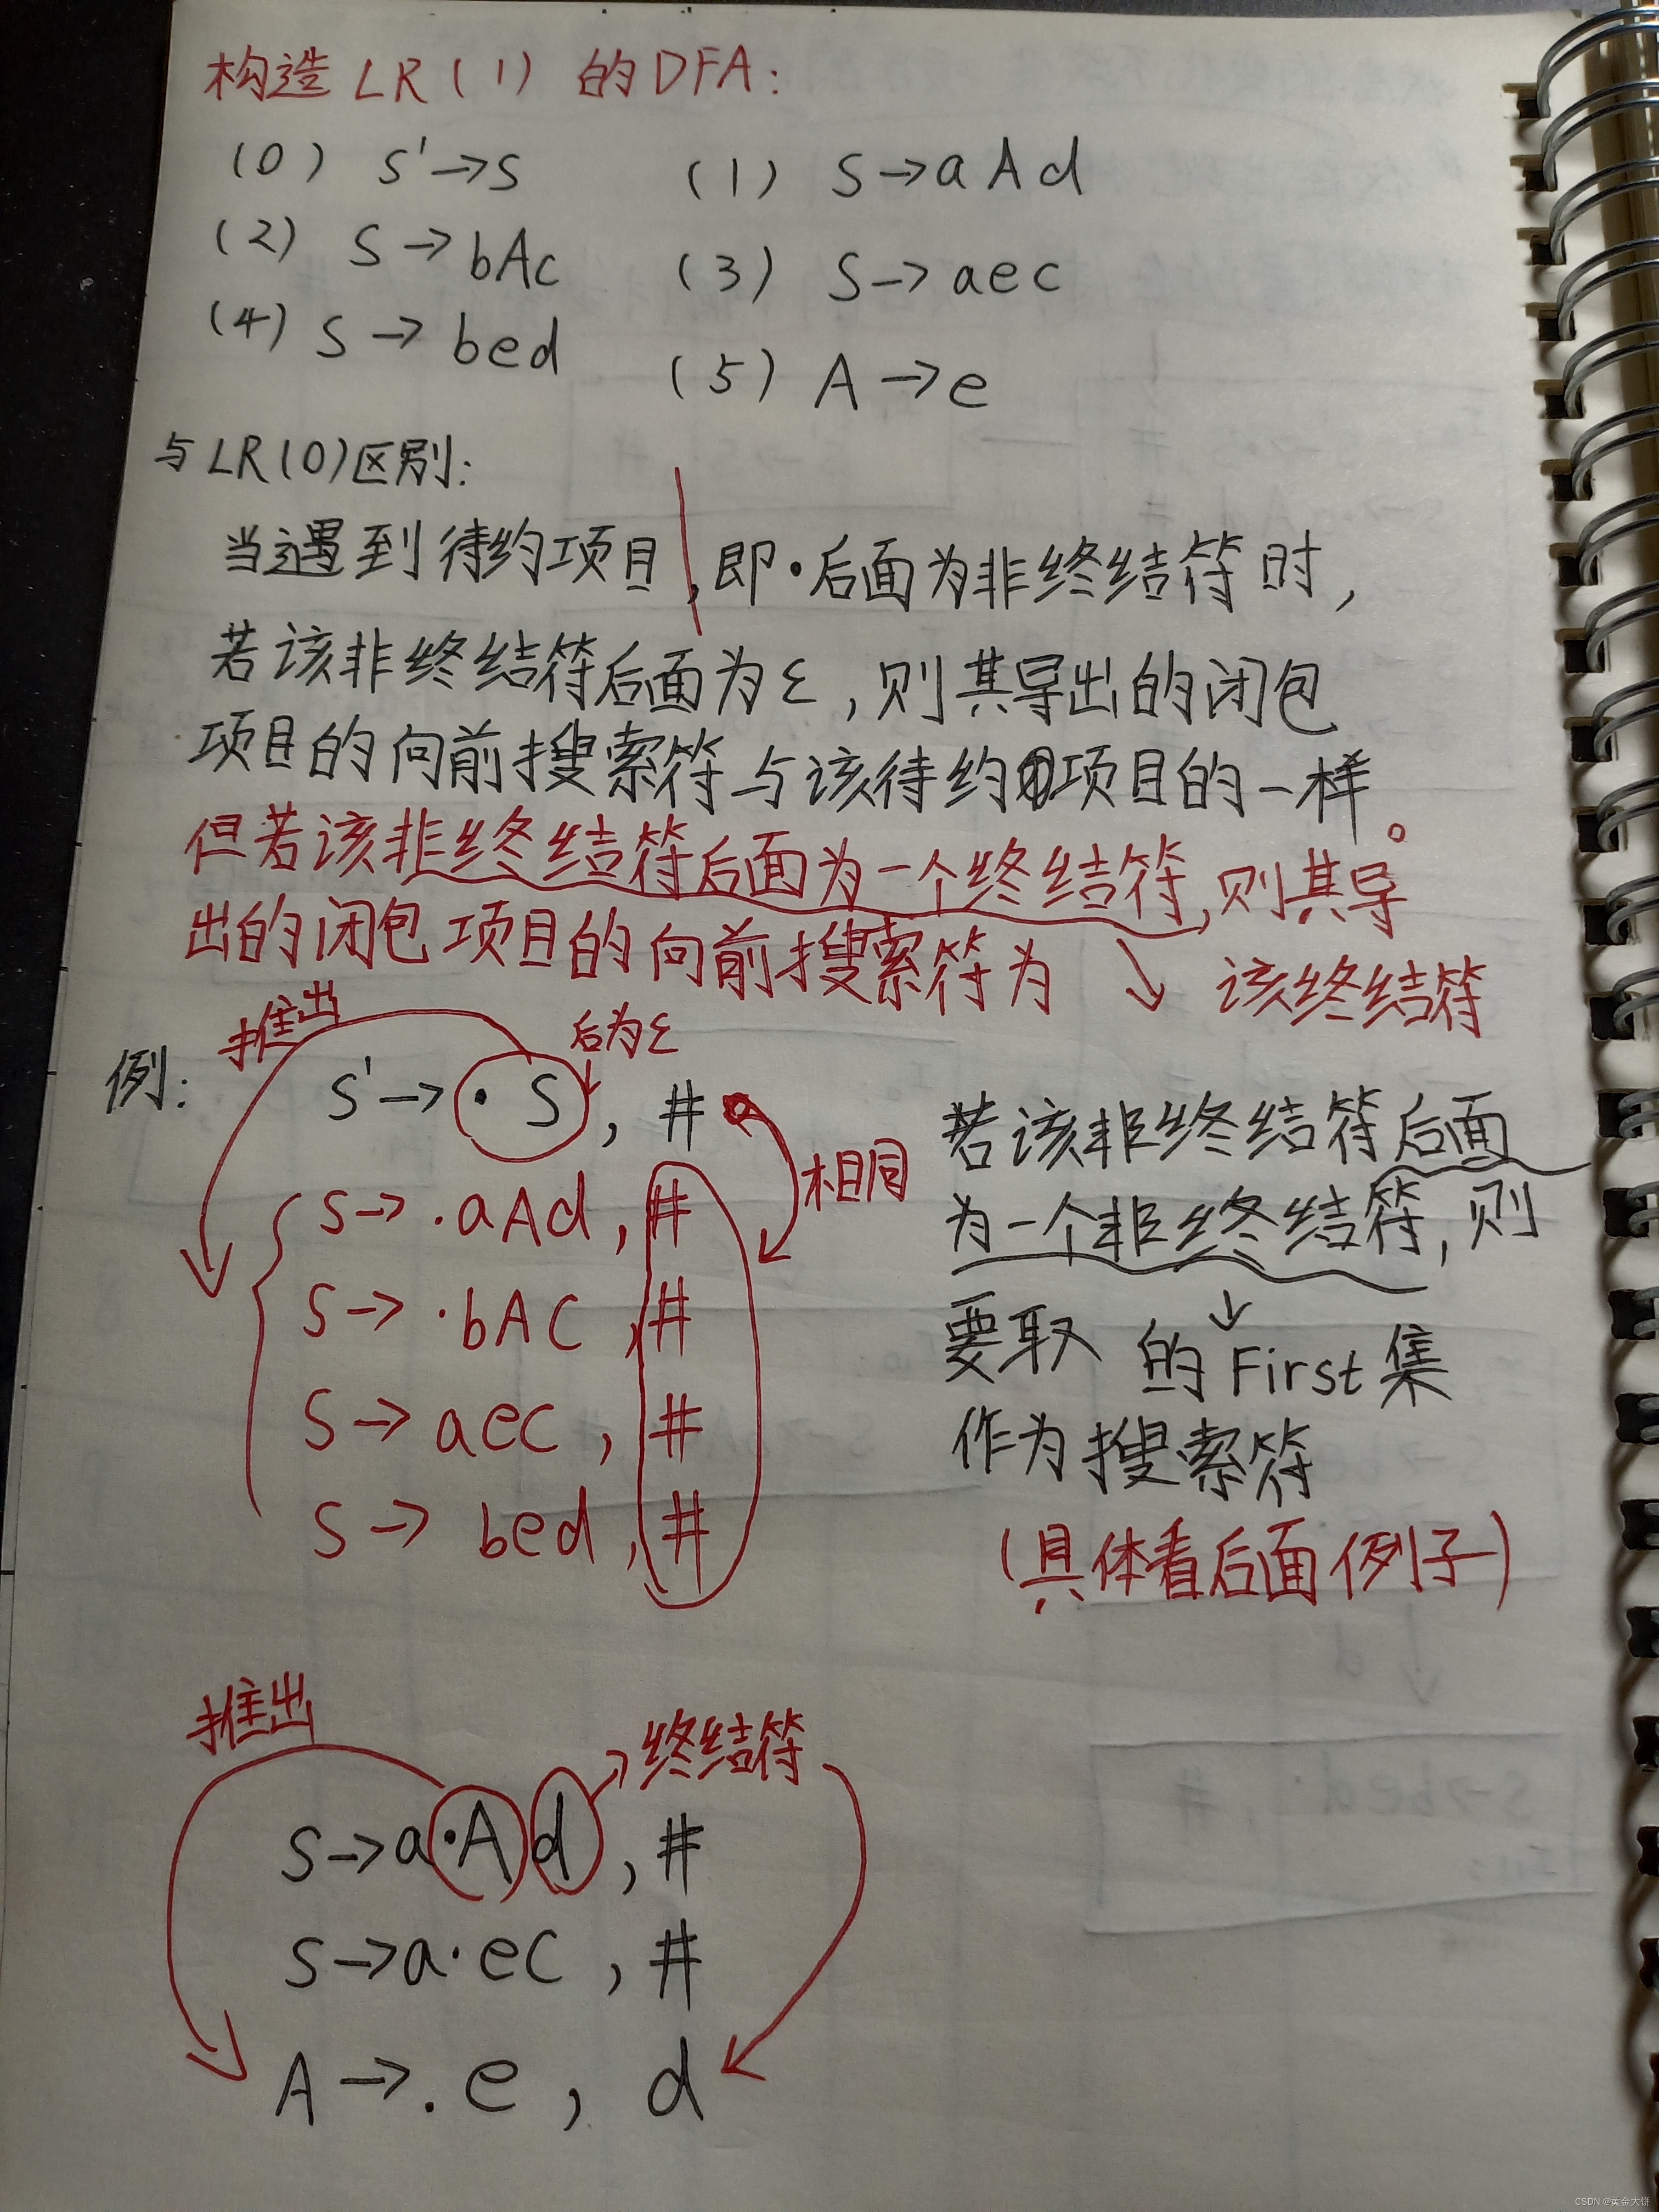 构造 LR(1) 的DFA:
(0) S'→S (1) S→aAd
(2) S→bAc (3) S→aec
(4) S→bed (5) A→e
与LR(0)区别:
当遇到待约项目,即·后面为非终结符时,
若该非终结符后面为ε,则其导出的闭包
项目的向前搜索符与该待约项目的一样。
但若该非终结符后面为一个终结符,则其导
出的闭包项目的向前搜索符为 ↘ 该终结符
推出 后为ε
例: S'→·S, #
相同
S→·aAd, #
S→·bAC, #
S→aec, #
S→bed, #
若该非终结符后面
为一个非终结符,则
↓
要取 的First集
作为搜索符
(具体看后面例子)
推出 终结符
S→a·Ad, #
S→a·ec, #
A→.e, d
CSDN @黄金大饼